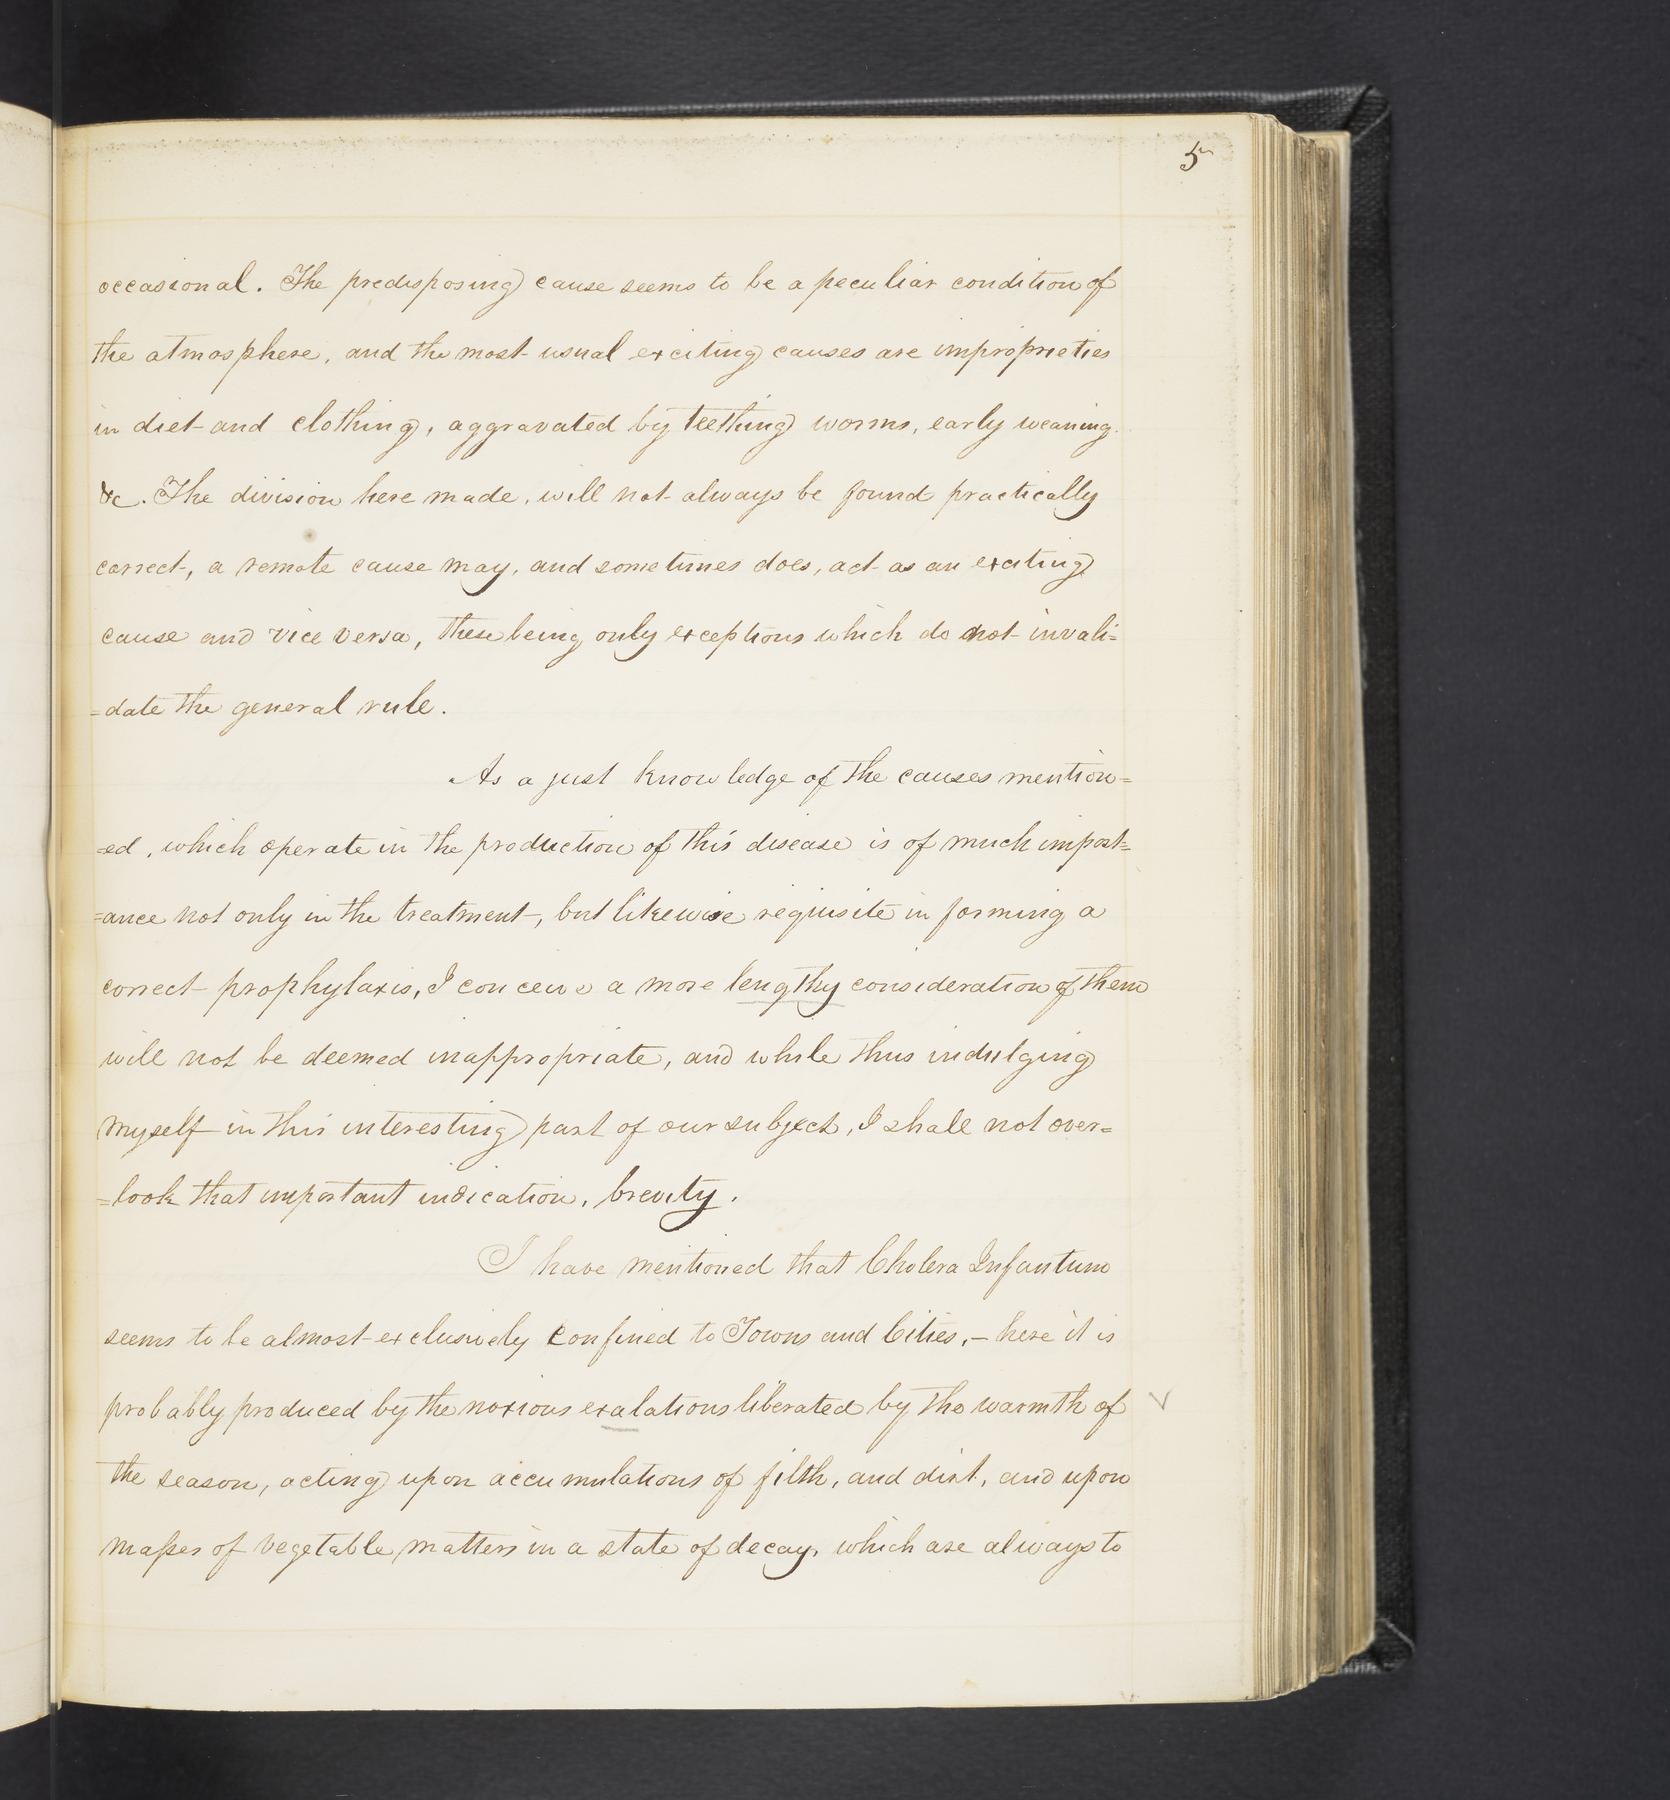 5
occasional. The predisposing cause seems to be a peculiar condition of
the atmosphere, and the most usual exciting causes are improprieties
in diet and clothing, aggravated by teething worms, early weaning.
&c. The division here made, will not always be found practically
correct, a remote cause may, and sometimes does, act as an exciting
cause and vice versa, these being only exceptions which do not invali=
=date the general rule.
As a just knowledge of the causes mention=
=ed, which operate in the production of this disease is of much import=
=ance not only in the treatment, but likewise requisite in forming a
correct prophylaxis, I conceive a more lengthy consideration of them
will not be deemed inappropriate, and while thus indulging
myself in this interesting part of our subject, I shall not over=
=look that important indication, brevity.
I have mentioned that Cholera Infantum
seems to be almost exclusively confined to Towns and Cities, – here it is
probably produced by the noxious exalations liberated by the warmth of
the season, acting upon accumulations of filth, and dirt, and upon
masses of vegetable matters in a state of decay, which are always to